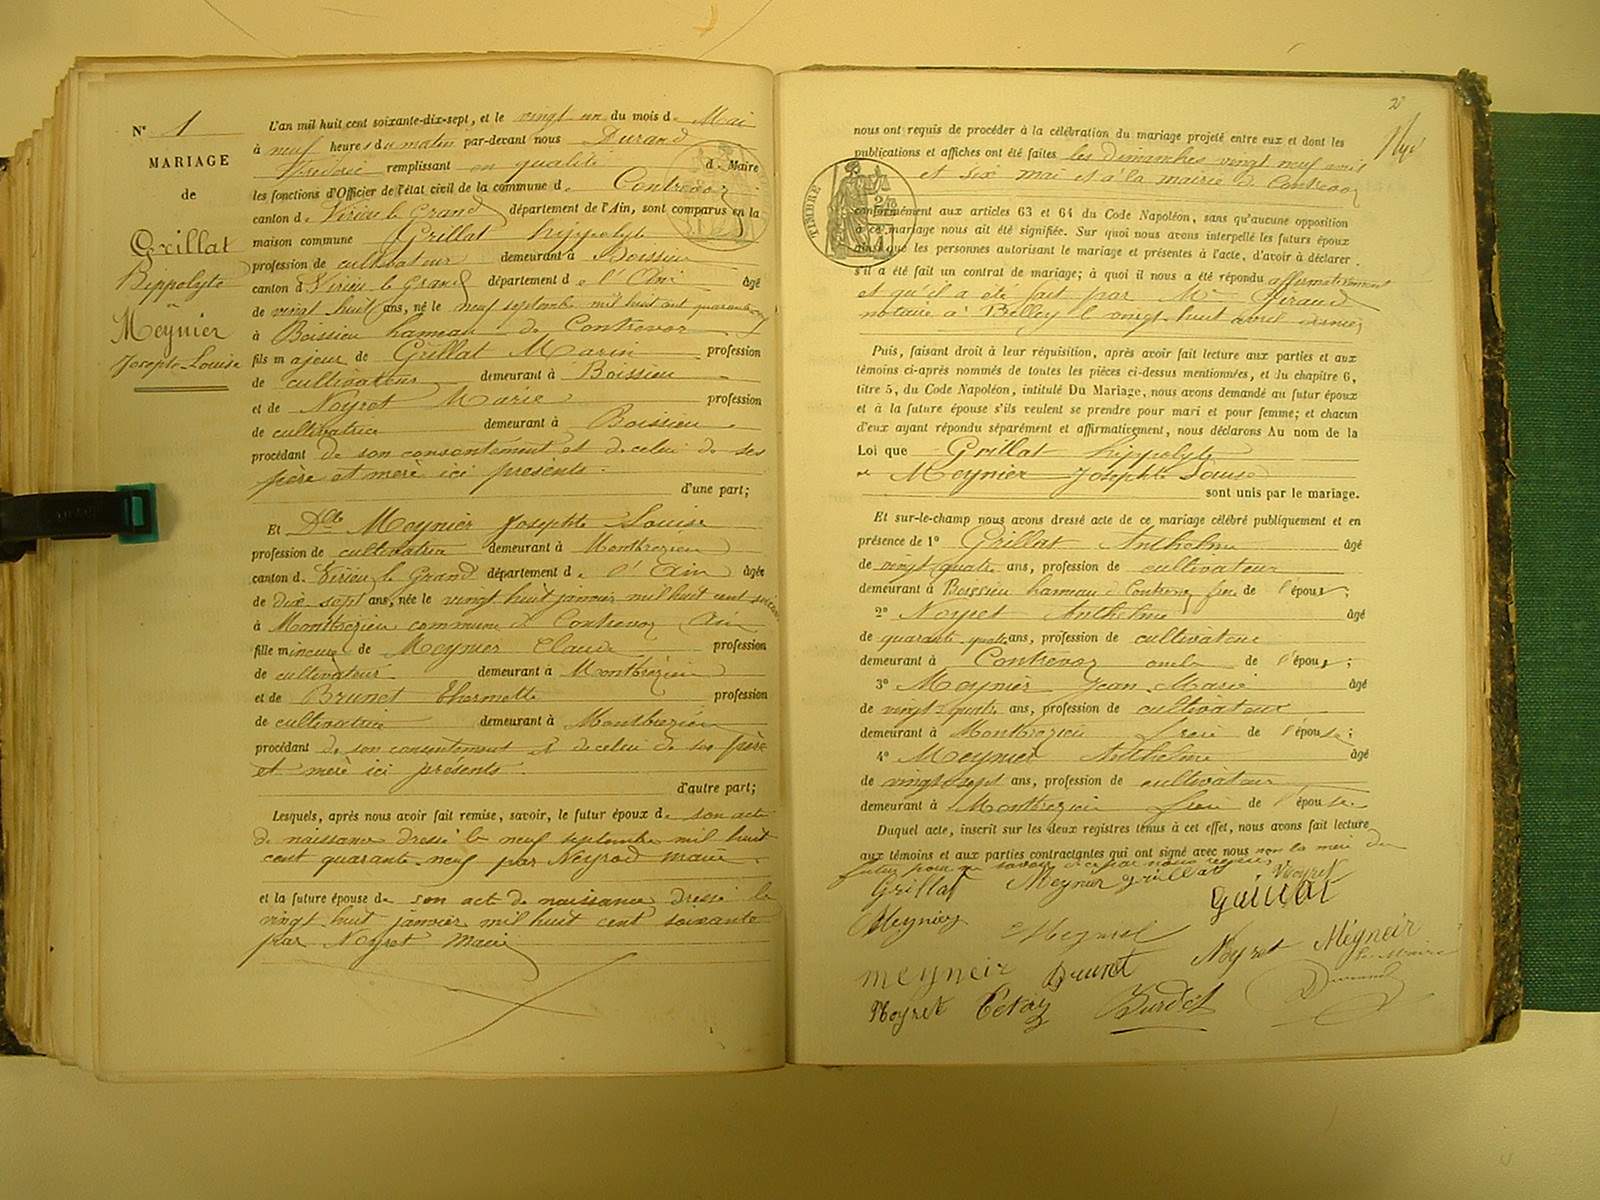 N° 1
MARIAGE
de
Grillat
Hippolyte
Meynier
Josephte Louise
L'an mil huit cent soixante-dix-sept, et le vingt un du mois de Mai
à neuf heures du matin par-devant nous Durand
Frédéric remplissant en qualité de Maire
les fonctions d'Officier de l'état civil de la commune de Contrevoz
canton de Virieu le Grand département de l'Ain, sont comparus en la
maison commune Grillat hippolyte
profession de cultivateur demeurant à Boissieu
canton d Virieu le Grand département de l'Ain âgé
de vingt huit ans, né le neuf septembre mil huit cent quarante neuf
à Boissieu hameau de Contrevoz
fils majeur de Grillat Marin profession
de cultivateur demeurant à Boissieu
et de Neyret Marie profession
de cultivatrice demeurant à Boissieu
procédant de son consentement et de celui de ses
père et mère ici présents.
d'une part;
Et Dlle Meynier Josephte Louise
profession de cultivatrice demeurant à Montbrezieu
canton d. Virieu le Grand département de l'Ain âgée
de dix sept ans, née le vingt huit janvier mil huit cent soixante
à Montbrezieu commune d Contrevoz Ain
fille mineure de Meynier Claude profession
de cultivateur demeurant à Montbrezieu
et de Brunet Thermette profession
de cultivatrice demeurant à Montbrezieu
procédant de son consentement et de celui de ses père
et mère ici présents.
d'autre part;
Lesquels, après nous avoir fait remise, savoir, le futur époux de son acte
de naissance dressé le neuf septembre mil huit
cent quarante neuf par Neyrod maire
et la future épouse de son act de naissance dressé le
vingt huit janvier mil huit cent soixante
par Neyret maire
2
nous ont requis de procéder à la célébration du mariage projeté entre eux et dont les
publications et affiches ont été faites les dimanches vingt neuf avril
et six mai et à la mairie de Contrevoz
TIMBRE
conformément aux articles 63 et 64 du Code Napoléon, sans qu'aucune opposition
à ce mariage nous ait été signifiée. Sur quoi nous avons interpellé les futurs époux
ainsi que les personnes autorisant le mariage et présentes à l'acte, d'avoir à déclarer
s'il a été fait un contrat de mariage; à quoi il nous a été répondu affirmativement
et qu'il a été fait par Me Giraud
notaire à Belley le vingt huit avril dernier
Puis, faisant droit à leur réquisition, après avoir fait lecture aux parties et aux
témoins ci-après nommés de toutes les pièces ci-dessus mentionnées, et du chapitre 6,
titre 5, du Code Napoléon, intitulé Du Mariage, nous avons demandé au futur époux
et à la future épouse s'ils veulent se prendre pour mari et pour femme; et chacun
d'eux ayant répondu séparément et affirmativement, nous déclarons Au nom de la
Loi que Grillat hippolyte
et Meynier Josephte Louise
sont unis par le mariage.
Et sur-le-champ nous avons dressé acte de ce mariage célébré publiquement et en
présence de 1° Grillat Anthelme âgé
de vingt quatre ans, profession de cultivateur
demeurant à Boissieu hameau d Contrevoz frère de l'époux;
2° Neyret Anthelme âgé
de quarante quatre ans, profession de cultivateur
demeurant à Contrevoz oncle de l'époux;
3° Meynier Jean Marie âgé
de vingt quatre ans, profession de cultivateur
demeurant à Montbrezieu frère de l'épouse;
4° Meynier Anthelme âgé
de vingt sept ans, profession de cultivateur
demeurant à Montbrezieu frère de l'épouse
Duquel acte, inscrit sur les deux registres tenus à cet effet, nous avons fait lecture
aux témoins et aux parties contractantes qui ont signé avec nous non la mère du
futur pour ne savoir de ce par nous requis
Grillat Meynier Grillat Neyret
Grillat
Meynier Meynier
Neyret Meyneir
Le Maire
meyneir Brunet
Durand
Neyret Tétaz Burdet